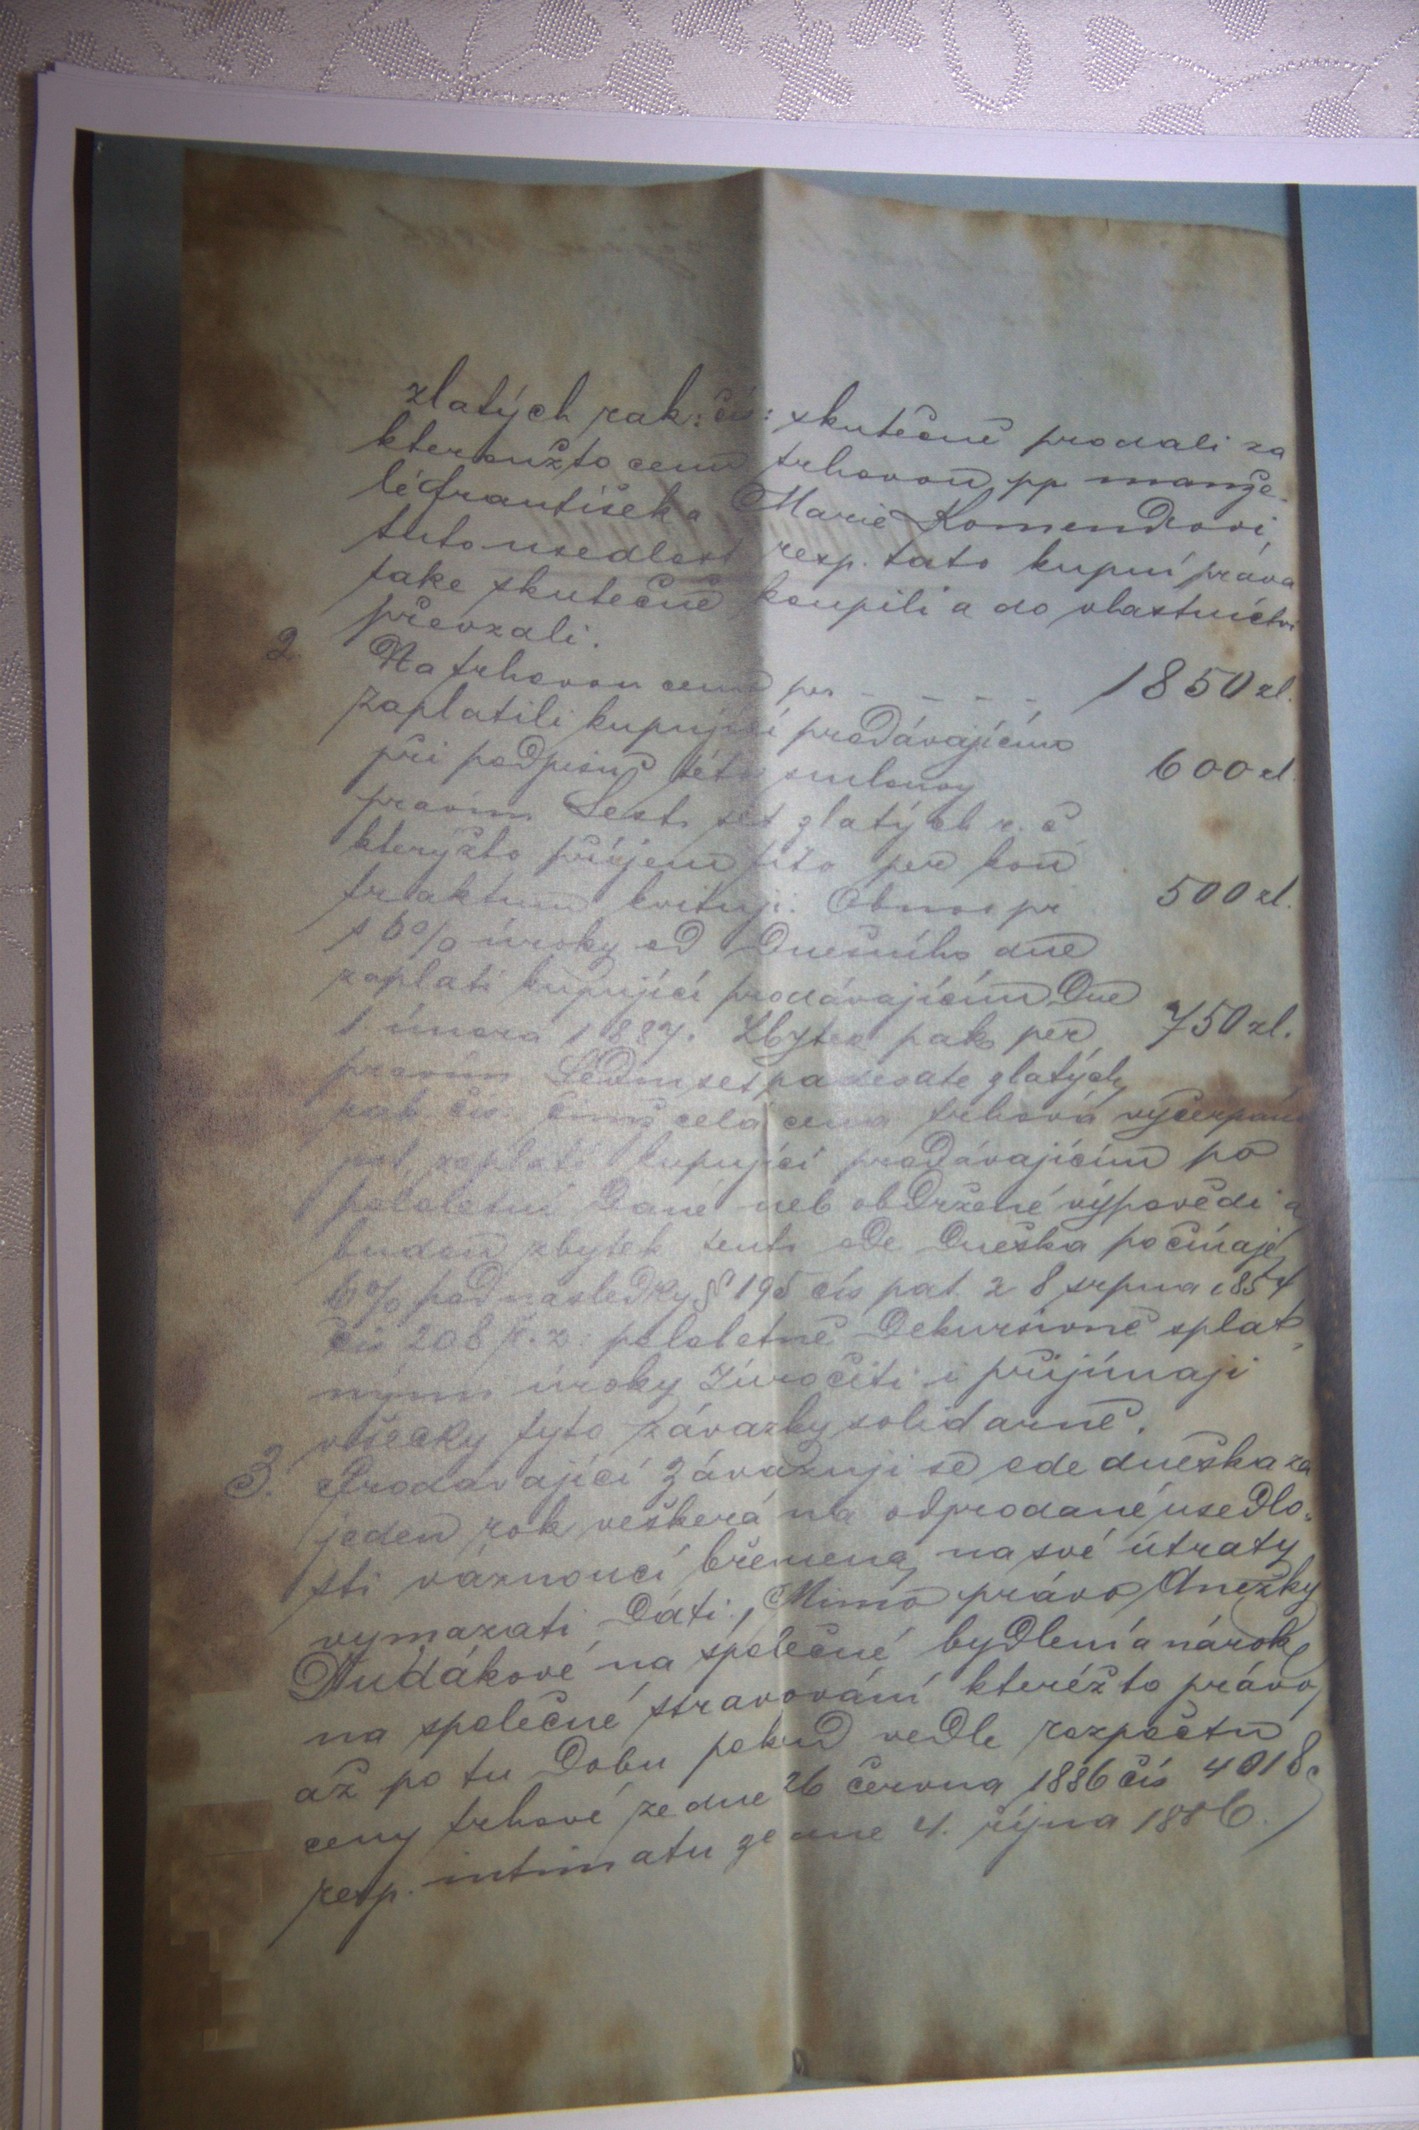 zlatých rak: čís: skutečně prodali za
kteroužto cenu trhovou pp manže-
lé František a Marie Komendovi,
tuto usedlost resp. tato kupní práva
take skutečně koupili a do vlastnictví
převzali.
2. Na trhovou cenu per - - - - - 1850 zl.
zaplatili kupující prodávajícímu
při podpisu této smlouvy 600 zl.
pravím Šest set zlatých r. č
kterýžto příjem tito per kon
traktum kvitují. Obnos pr 500 zl.
s 6% úroky od Dnešního dne
zaplatí kupující prodávajícím Dne
1. února 1887. Zbytek pak per 750 zl.
pravím Sedmsetpadesate zlatých
rak. čís. čímž celá cena trhová vyčerpána
jest, zaplatí kupující prodávajícím po
pololetní Dané neb obdržené výpovědi a
budou zbytek tento ode Dneška počínaje
6% pod nasledky § 195 cís pat. z 8 srpna 1854
čís 208 ř. z. pololetně Dekursivně splat-
nými úroky zúročiti i přijímají
všecky tyto závazky solidarně.
3. Prodávající zavazuji se ode dneška za
jeden rok veškerá na odprodané usedlo-
sti váznoucí břemena na své útraty
vymazati Dáti, Mimo právo Anežky
Hudákové na společné bydlení a nárok
na společné stravování kteréžto právo
až po tu Dobu pokud vedle rozpočtu
ceny trhové ze dne 26 června 1886 čís 4018
resp. intimatu ze dne 4. října 1886.